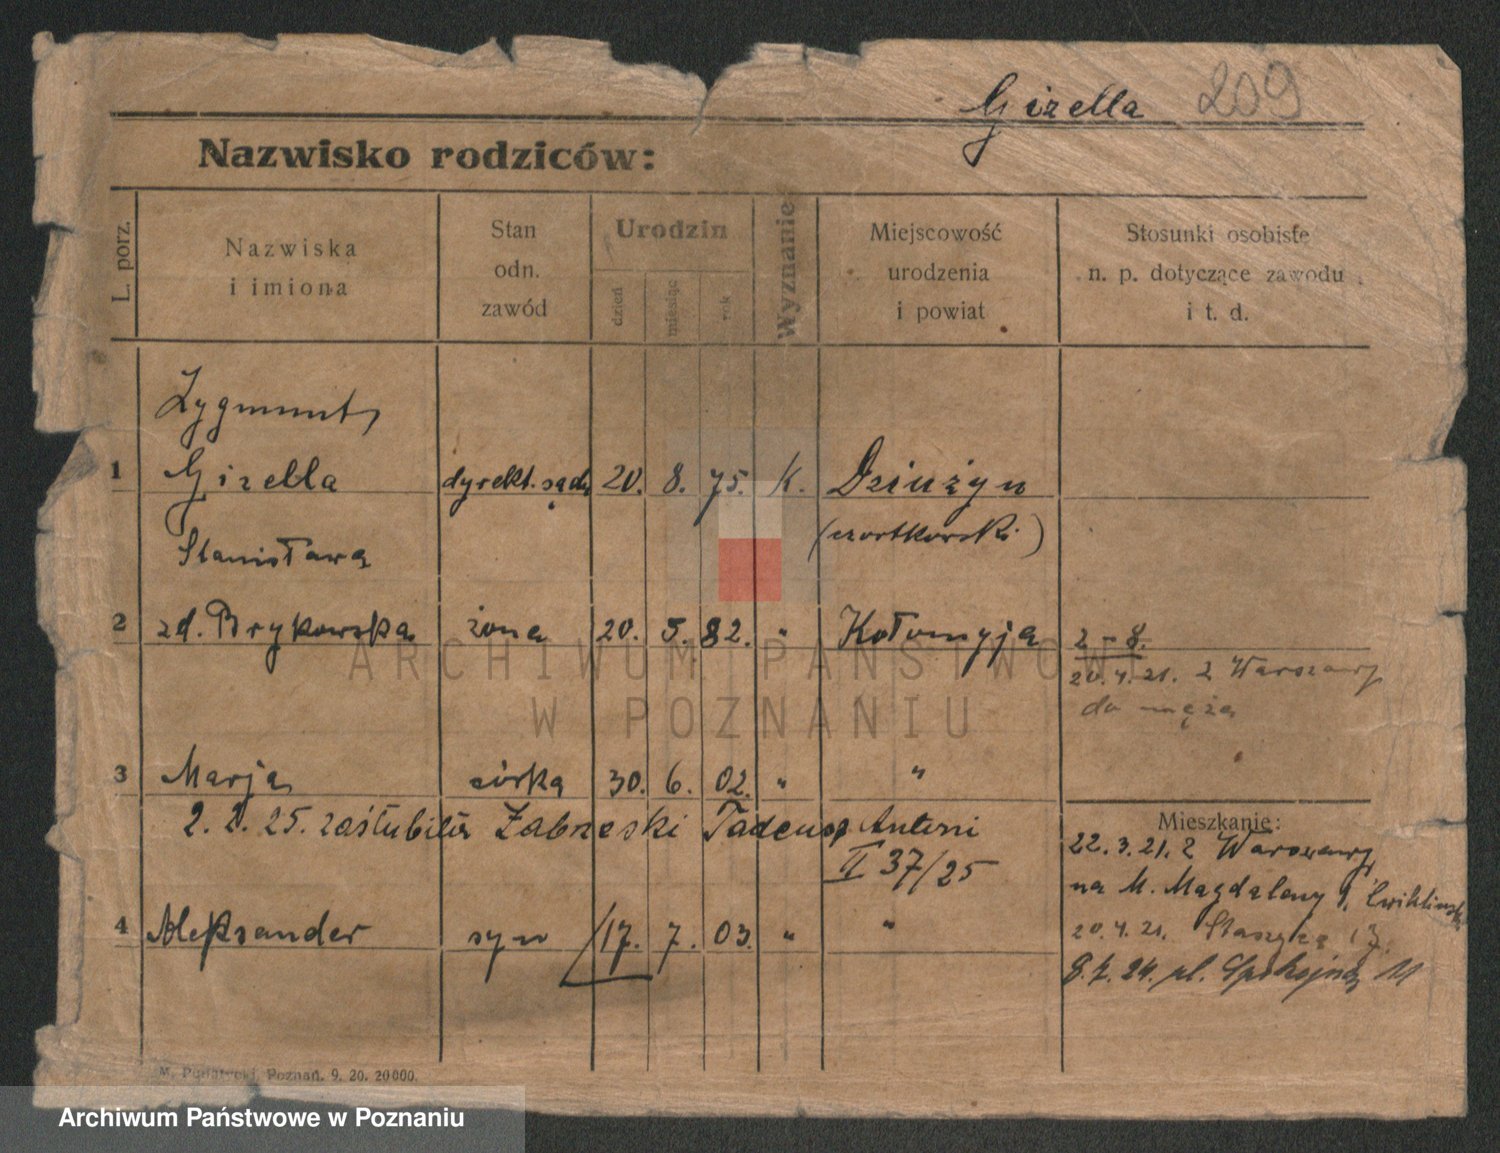 Gizella 209
Nazwisko rodziców:
L. porz.
Nazwiska
i imiona
Stan
odn.
zawód
Urodzin
dzień
miesiąc
rok
Wyznanie
Miejscowość
urodzenia
i powiat
Stosunki osobiste
n. p. dotyczące zawodu
i t. d.
Zygmunt
1 Gizella dyrekt. sądu 20. 8. 75. k. Dziużyn
(czortkowski)
Stanisława
2 zd. Brykowska żona 20. 5. 82. " Kołomyja 2-8.
20.4.21. z Warszawy
do męża
3 Marja córka 30. 6. 02. " "
2. 2. 25. zaślubiła Zabrzeski Tadeusz Antoni
II 37/25
Mieszkanie:
22.3.21. z Warszawy
na M. Magdaleny 1,
4 Aleksander syn 17. 7. 03. " "
20.4.21. Staszyca 17.
8.7.24. ul. Spokojna 11
M. Putiatycki, Poznań. 9. 20. 20000.
ARCHIWUM PAŃSTWOWE
W POZNANIU
Archiwum Państwowe w Poznaniu